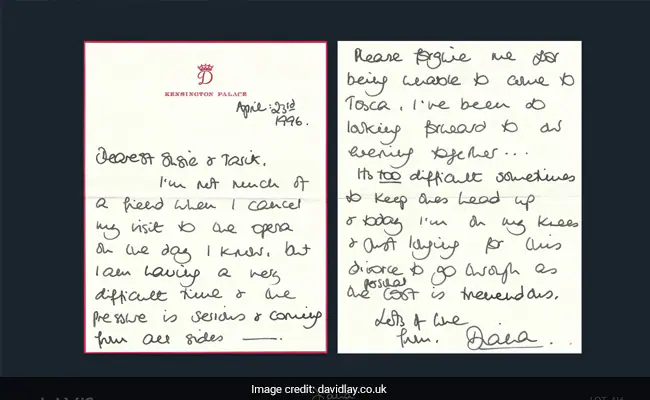 D
KENSINGTON PALACE
April: 23rd
1996.
Dearest Susie & Tarik.
I'm not much of
a friend when I cancel
my visit to the opera
on the day I know, but
I am having a very
difficult time & the
pressure is serious & coming
from all sides —.
Please forgive me for
being unable to come to
Tosca. I've been so
looking forward to our
evening together...
It's too difficult sometimes
to keep ones head up
& today I'm on my knees
& just longing for this
divorce to go through as
the possible cost is tremendous.
Lots of love
from. Diana.
Image credit: davidlay.co.uk